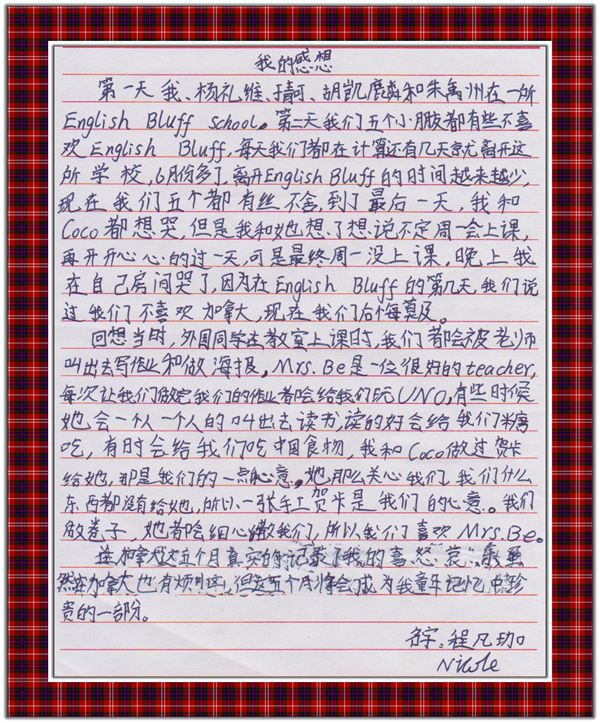 我的感想
第一天我、杨礼维、靖、胡凯麟和朱禹州在一所
English Bluff school。第二天我们五个小朋友都有些不喜
欢 English Bluff,每天我们都在计算还有几天就离开这
所学校,6月份多了,离开English Bluff的时间越来越少,
现在我们五个都有丝不舍,到了最后一天,我和
Coco都想哭,但是我和她想了想说不定周一会上课,
再开开心心的过一天,可是最终周一没上课,晚上我
在自己房间哭了,因为在English Bluff的第几天我们说
过我们不喜欢加拿大,现在我们后悔莫及。
回想当时,外国同学在教室上课时,我们都会被老师
叫出去写作业和做海报,Mrs.Be是一位很好的teacher,
每次让我们做完我们的作业都会给我们玩UNO,有些时候
她会一个人一个人的叫出去读书,读的好会给我们糖
吃,有时会给我们吃中国食物,我和Coco做过贺卡
给她,那是我们的一点心意。她那么关心我们,我们什么
东西都没有给她,所以一张手工贺卡是我们的心意。我们
做卷子,她都会细心教我们,所以我们喜欢Mrs.Be。
在加拿大这五个月真实的记录了我的喜、怒、哀、乐,虽
然在加拿大也有烦恼,但这五个月将会成为我童年记忆中珍
贵的一部分。
名字:程凡珈
Nicole